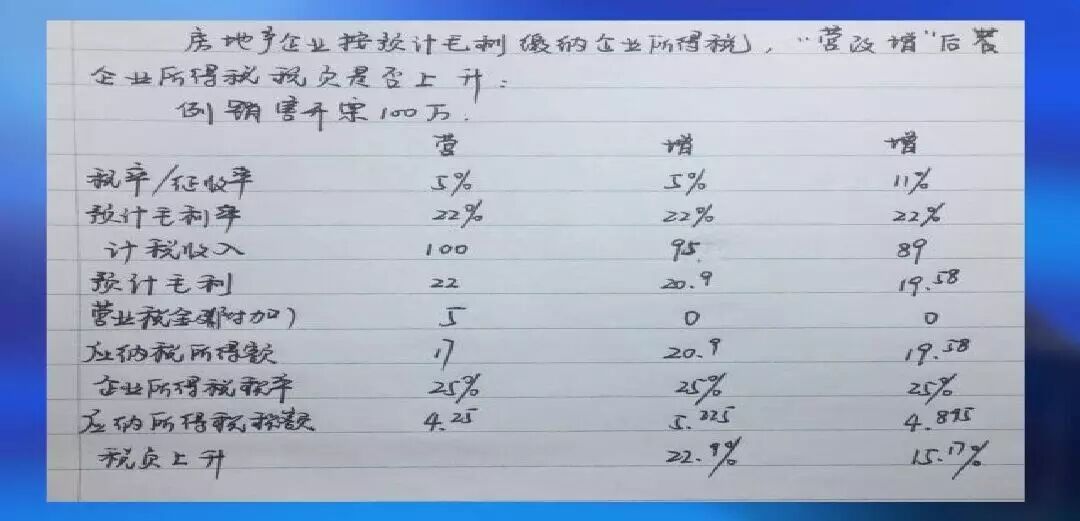 房地产企业按预计毛利缴纳企业所得税,“营改增”后
企业所得税税负是否上升:
例 销售开票100万.
营 增 增
税率/征收率 5% 5% 11%
预计毛利率 22% 22% 22%
计税收入 100 95 89
预计毛利 22 20.9 19.58
营业税金(附加) 5 0 0
应纳税所得额 17 20.9 19.58
企业所得税税率 25% 25% 25%
应纳所得税税额 4.25 5.225 4.895
税负上升 22.9% 15.17%